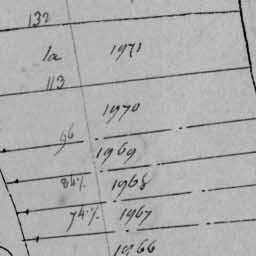 132
1a 1971
113
1970
96
1969
84½ 1968
74½ 1967
1966